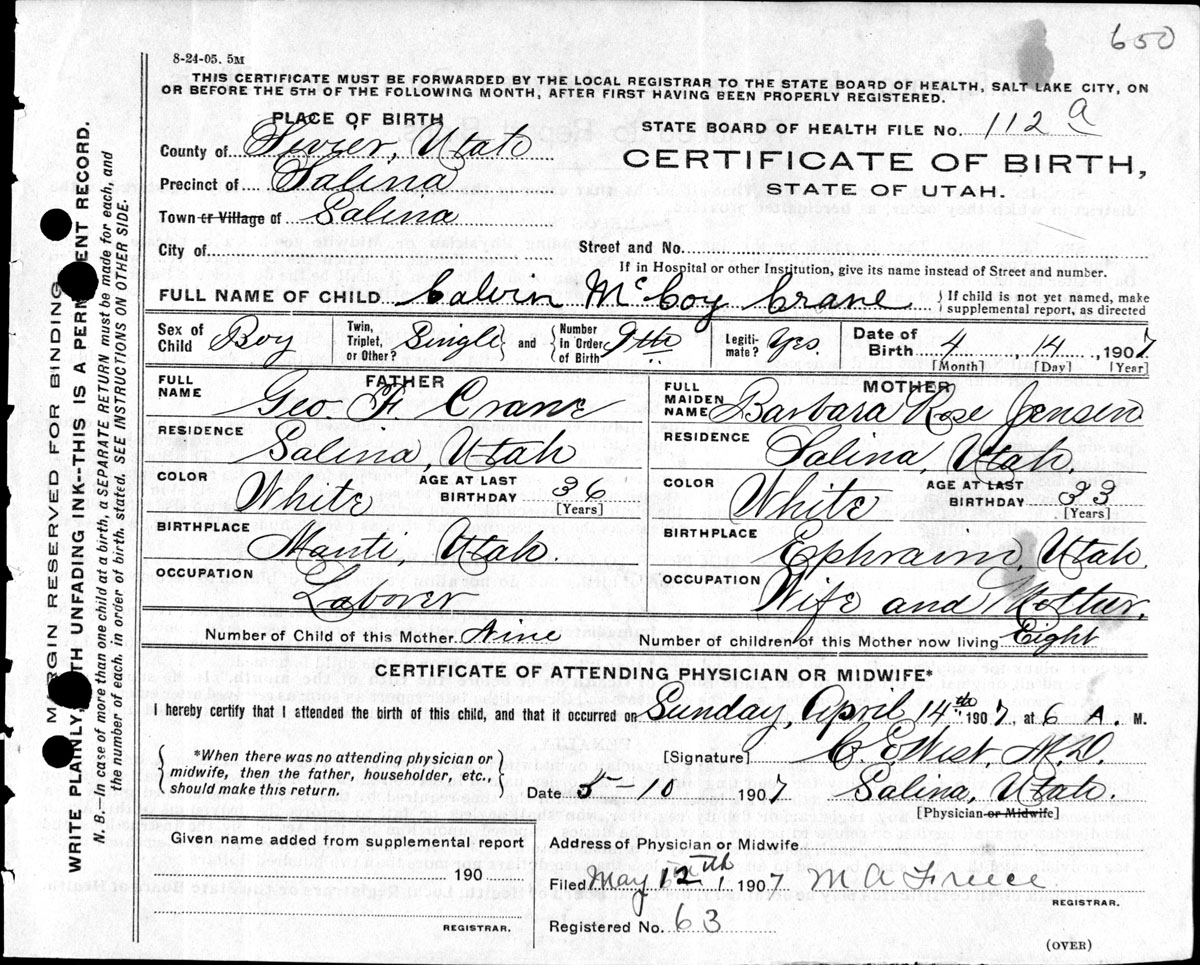 650
8-24-05. 5M
THIS CERTIFICATE MUST BE FORWARDED BY THE LOCAL REGISTRAR TO THE STATE BOARD OF HEALTH, SALT LAKE CITY, ON
OR BEFORE THE 5TH OF THE FOLLOWING MONTH, AFTER FIRST HAVING BEEN PROPERLY REGISTERED.
PLACE OF BIRTH
STATE BOARD OF HEALTH FILE No. 112 a
County of Sevier, Utah
CERTIFICATE OF BIRTH,
Precinct of Salina
STATE OF UTAH.
Town or Village of Salina
City of Street and No.
If in Hospital or other Institution, give its name instead of Street and number.
FULL NAME OF CHILD Calvin McCoy Crane {If child is not yet named, make supplemental report, as directed
Sex of Child Boy Twin, Triplet, or Other? Single and {Number In Order of Birth 9th Legiti-mate? Yes. Date of Birth 4, 14, 1907
[Month] [Day] [Year]
FATHER MOTHER
FULL NAME Geo. F Crane FULL MAIDEN NAME Barbara Rose Jensen
RESIDENCE Salina, Utah RESIDENCE Salina, Utah.
COLOR White AGE AT LAST BIRTHDAY 36 COLOR White AGE AT LAST BIRTHDAY 33
[Years] [Years]
BIRTHPLACE Manti, Utah. BIRTHPLACE Ephraim, Utah.
OCCUPATION Laborer OCCUPATION Wife and Mother.
Number of Child of this Mother Nine Number of children of this Mother now living Eight
CERTIFICATE OF ATTENDING PHYSICIAN OR MIDWIFE*
I hereby certify that I attended the birth of this child, and that it occurred on Sunday, April 14th 1907, at 6 A. M.
{*When there was no attending physician or midwife, then the father, householder, etc., should make this return.}
[Signature] C. E. West, M.D.
Date 5-10 1907 Salina, Utah.
[Physician or Midwife]
Given name added from supplemental report
Address of Physician or Midwife
190
Filed May 12th, 1907 M A
REGISTRAR.
Registered No. 63
REGISTRAR.
(OVER)
MARGIN RESERVED FOR BINDING
WRITE PLAINLY, WITH UNFADING INK--THIS IS A PERMANENT RECORD.
N. B.—In case of more than one child at a birth, a SEPARATE RETURN must be made for each, and
the number of each, in order of birth, stated. SEE INSTRUCTIONS ON OTHER SIDE.